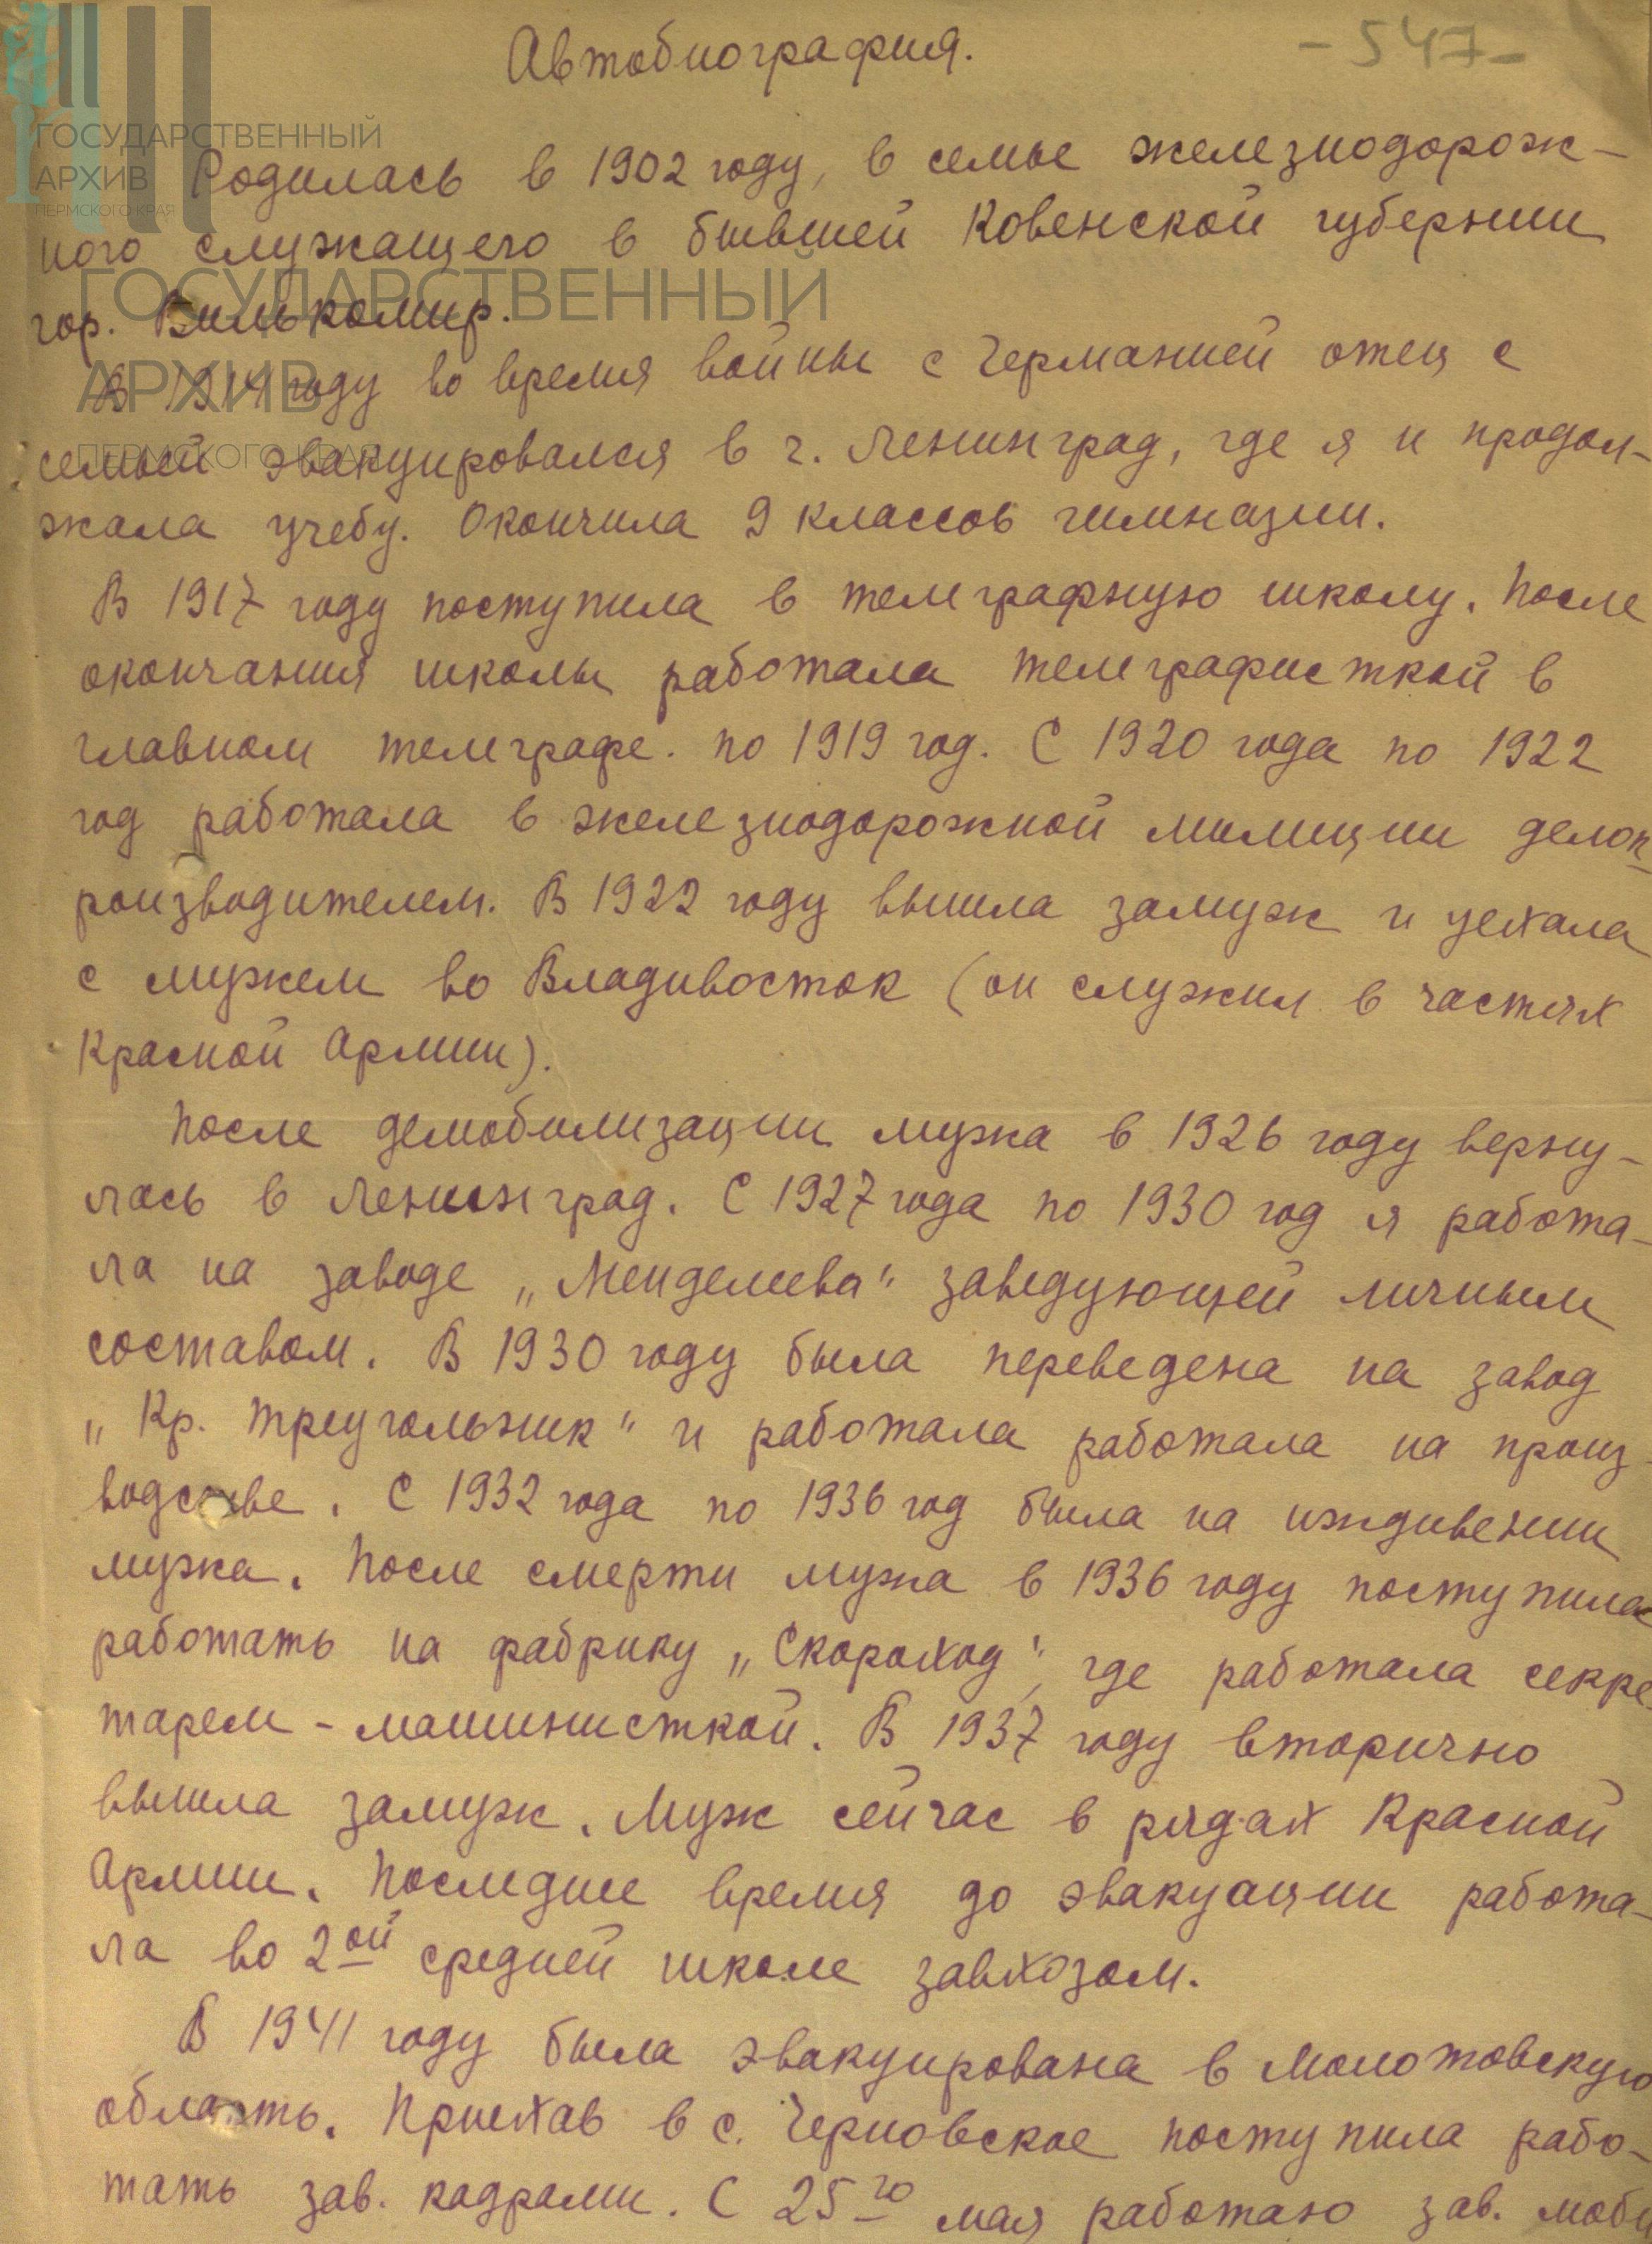 Автобиография.
- 547 -
ГОСУДАРСТВЕННЫЙ
АРХИВ
ПЕРМСКОГО КРАЯ
Родилась в 1902 году, в семье железнодорож-
ного служащего в бывшей Ковенской губернии
гор. Вилькомир.
ГОСУДАРСТВЕННЫЙ
АРХИВ
ПЕРМСКОГО КРАЯ
В 1914 году во время войны с Германией отец с
семьей эвакуировался в г. Ленинград, где я и продол-
жала учебу. Окончила 9 классов гимназии.
В 1917 году поступила в телеграфную школу. После
окончания школы работала телеграфисткой в
главном телеграфе. по 1919 год. С 1920 года по 1922
год работала в железнодорожной милиции делоп-
роизводителем. В 1922 году вышла замуж и уехала
с мужем во Владивосток (он служил в частях
Красной Армии).
После демобилизации мужа в 1926 году верну-
лась в Ленинград. С 1927 года по 1930 год я работа-
ла на заводе „Менделеева" заведующей личным
составом. В 1930 году была переведена на завод
„Кр. Треугольник" и работала работала на произ-
водстве. С 1932 года по 1936 год была на иждивении
мужа. После смерти мужа в 1936 году поступила
работать на фабрику „Скороход", где работала секре-
тарем - машинисткой. В 1937 году вторично
вышла замуж. Муж сейчас в рядах Красной
Армии. Последнее время до эвакуации работа-
ла во 2ой средней школе завхозом.
В 1941 году была эвакуирована в Молотовскую
область. Приехав в с. Черновское поступила рабо-
тать зав. кадрами. С 25го мая работаю зав. моби